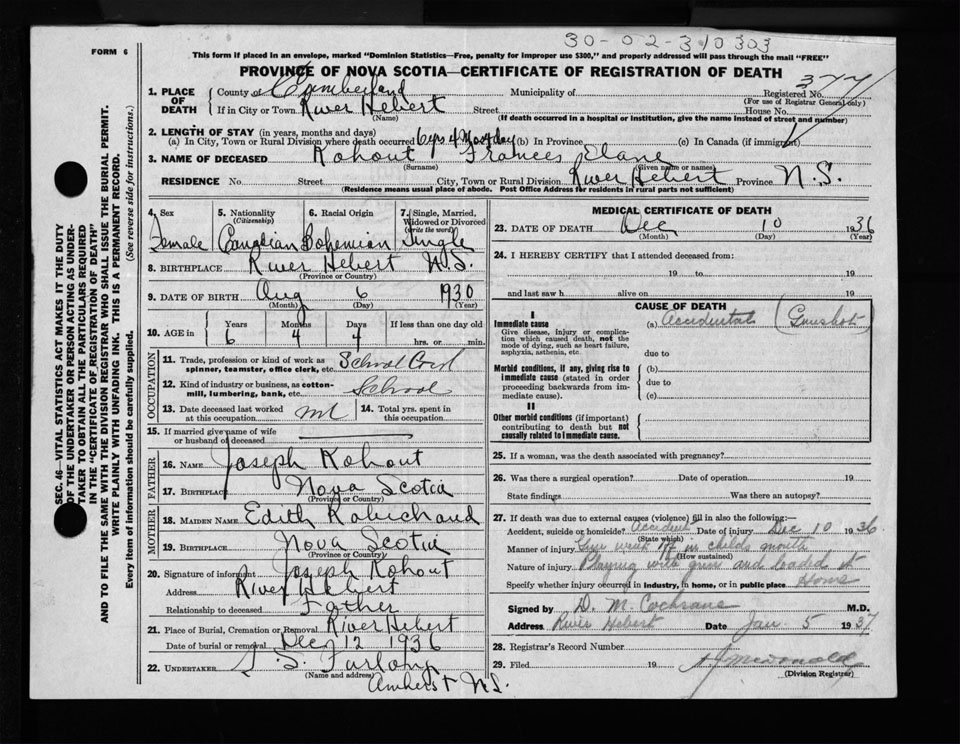 30-02-310303
FORM 6
This form if placed in an envelope, marked "Dominion Statistics—Free, penalty for improper use $300," and properly addressed will pass through the mail "FREE"
PROVINCE OF NOVA SCOTIA—CERTIFICATE OF REGISTRATION OF DEATH
SEC. 46—VITAL STATISTICS ACT MAKES IT THE DUTY
OF THE UNDERTAKER OR PERSON ACTING AS UNDER-
TAKER TO OBTAIN ALL THE PARTICULARS REQUIRED
IN THE "CERTIFICATE OF REGISTRATION OF DEATH"
AND TO FILE THE SAME WITH THE DIVISION REGISTRAR WHO SHALL ISSUE THE BURIAL PERMIT.
WRITE PLAINLY WITH UNFADING INK. THIS IS A PERMANENT RECORD.
Every item of information should be carefully supplied. (See reverse side for instructions.)
1. PLACE OF DEATH County of Cumberland Municipality of Registered No. 3771
(For use of Registrar General only)
If in City or Town River Hebert Street House No.
(Name) (If death occurred in a hospital or institution, give the name instead of street and number)
2. LENGTH OF STAY (in years, months and days)
(a) In City, Town or Rural Division where death occurred 6yrs 4 Mos 4 day (b) In Province (c) In Canada (if immigrant)
3. NAME OF DECEASED Kohout Frances Elane
(Surname) (Given name or names)
RESIDENCE No. Street City, Town or Rural Division River Hebert Province N.S.
(Residence means usual place of abode. Post Office Address for residents in rural parts not sufficient)
4. Sex 5. Nationality (Citizenship) 6. Racial Origin 7. Single, Married, Widowed or Divorced (write the word)
Female Canadian Bohemian Single
8. BIRTHPLACE River Hebert N.S.
(Province or Country)
9. DATE OF BIRTH Aug 6 1930
(Month) (Day) (Year)
10. AGE in Years Months Days If less than one day old
6 4 4 hrs. or min.
OCCUPATION
11. Trade, profession or kind of work as spinner, teamster, office clerk, etc. School Girl
12. Kind of industry or business, as cotton-mill, lumbering, bank, etc. School
13. Date deceased last worked at this occupation 14. Total yrs. spent in this occupation
15. If married give name of wife or husband of deceased
FATHER
16. NAME Joseph Kohout
17. BIRTHPLACE Nova Scotia
(Province or Country)
MOTHER
18. MAIDEN NAME Edith Robichaud
19. BIRTHPLACE Nova Scotia
(Province or Country)
20. Signature of informant Joseph Kohout
Address River Hebert
Relationship to deceased Father
21. Place of Burial, Cremation or Removal River Hebert
Date of burial or removal Dec 12 1936
22. UNDERTAKER S. S. Furlong
(Name and address)
Amherst N.S.
MEDICAL CERTIFICATE OF DEATH
23. DATE OF DEATH Dec 10 1936
(Month) (Day) (Year)
24. I HEREBY CERTIFY that I attended deceased from:
19 to 19
and last saw h alive on 19
CAUSE OF DEATH
I
Immediate cause (a) Accidental (Gunshot)
Give disease, injury or complica-
tion which caused death, not the
mode of dying, such as heart failure,
asphyxia, asthenia, etc. due to
Morbid conditions, if any, giving rise to (b)
immediate cause (stated in order due to
proceeding backwards from im-
mediate cause). (c)
II
Other morbid conditions (if important)
contributing to death but not
causally related to immediate cause.
25. If a woman, was the death associated with pregnancy?
26. Was there a surgical operation? Date of operation 19
State findings Was there an autopsy?
27. If death was due to external causes (violence) fill in also the following:—
Accident, suicide or homicide? Accident Date of injury Dec 10 1936
(State which)
Manner of injury Gun went off in childs mouth
(How sustained)
Nature of injury Playing with gun and loaded it
Specify whether injury occurred in industry, in home, or in public place Home
Signed by D. M. Cochrane M.D.
Address River Hebert Date Jan. 5 1937
28. Registrar's Record Number
29. Filed 19 McDonald
(Division Registrar)